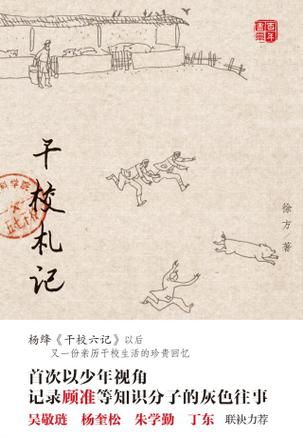 百年
書畫
干校札记
科学院
五七干校
徐方／著
杨绛《干校六记》以后
又一份亲历干校生活的珍贵回忆
首次以少年视角
记录顾准等知识分子的灰色往事
吴敬琏 杨奎松 朱学勤 丁东 联袂力荐